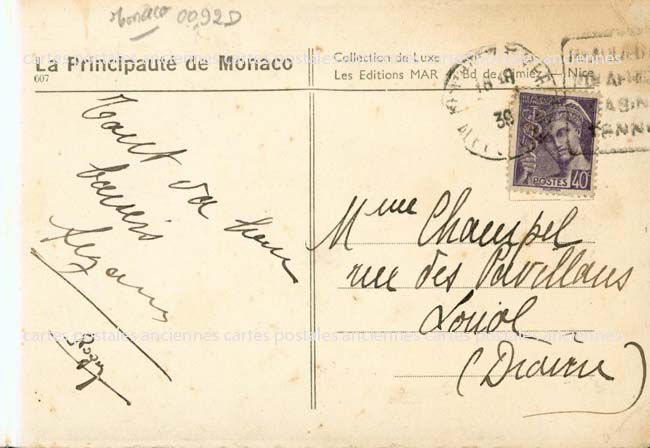 Monaco 00.92D
La Principauté de Monaco
607
Collection de Luxe
Les Editions MAR Bd de Nice
cartes postales anciennes cartes postales anciennes cartes postales anciennes
39
POSTES 40
Tout va bien
baisers
Mme Champel
rue des Pavillons
Loriol
(Drôme)
cartes postales anciennes cartes postales anciennes cartes postales anciennes